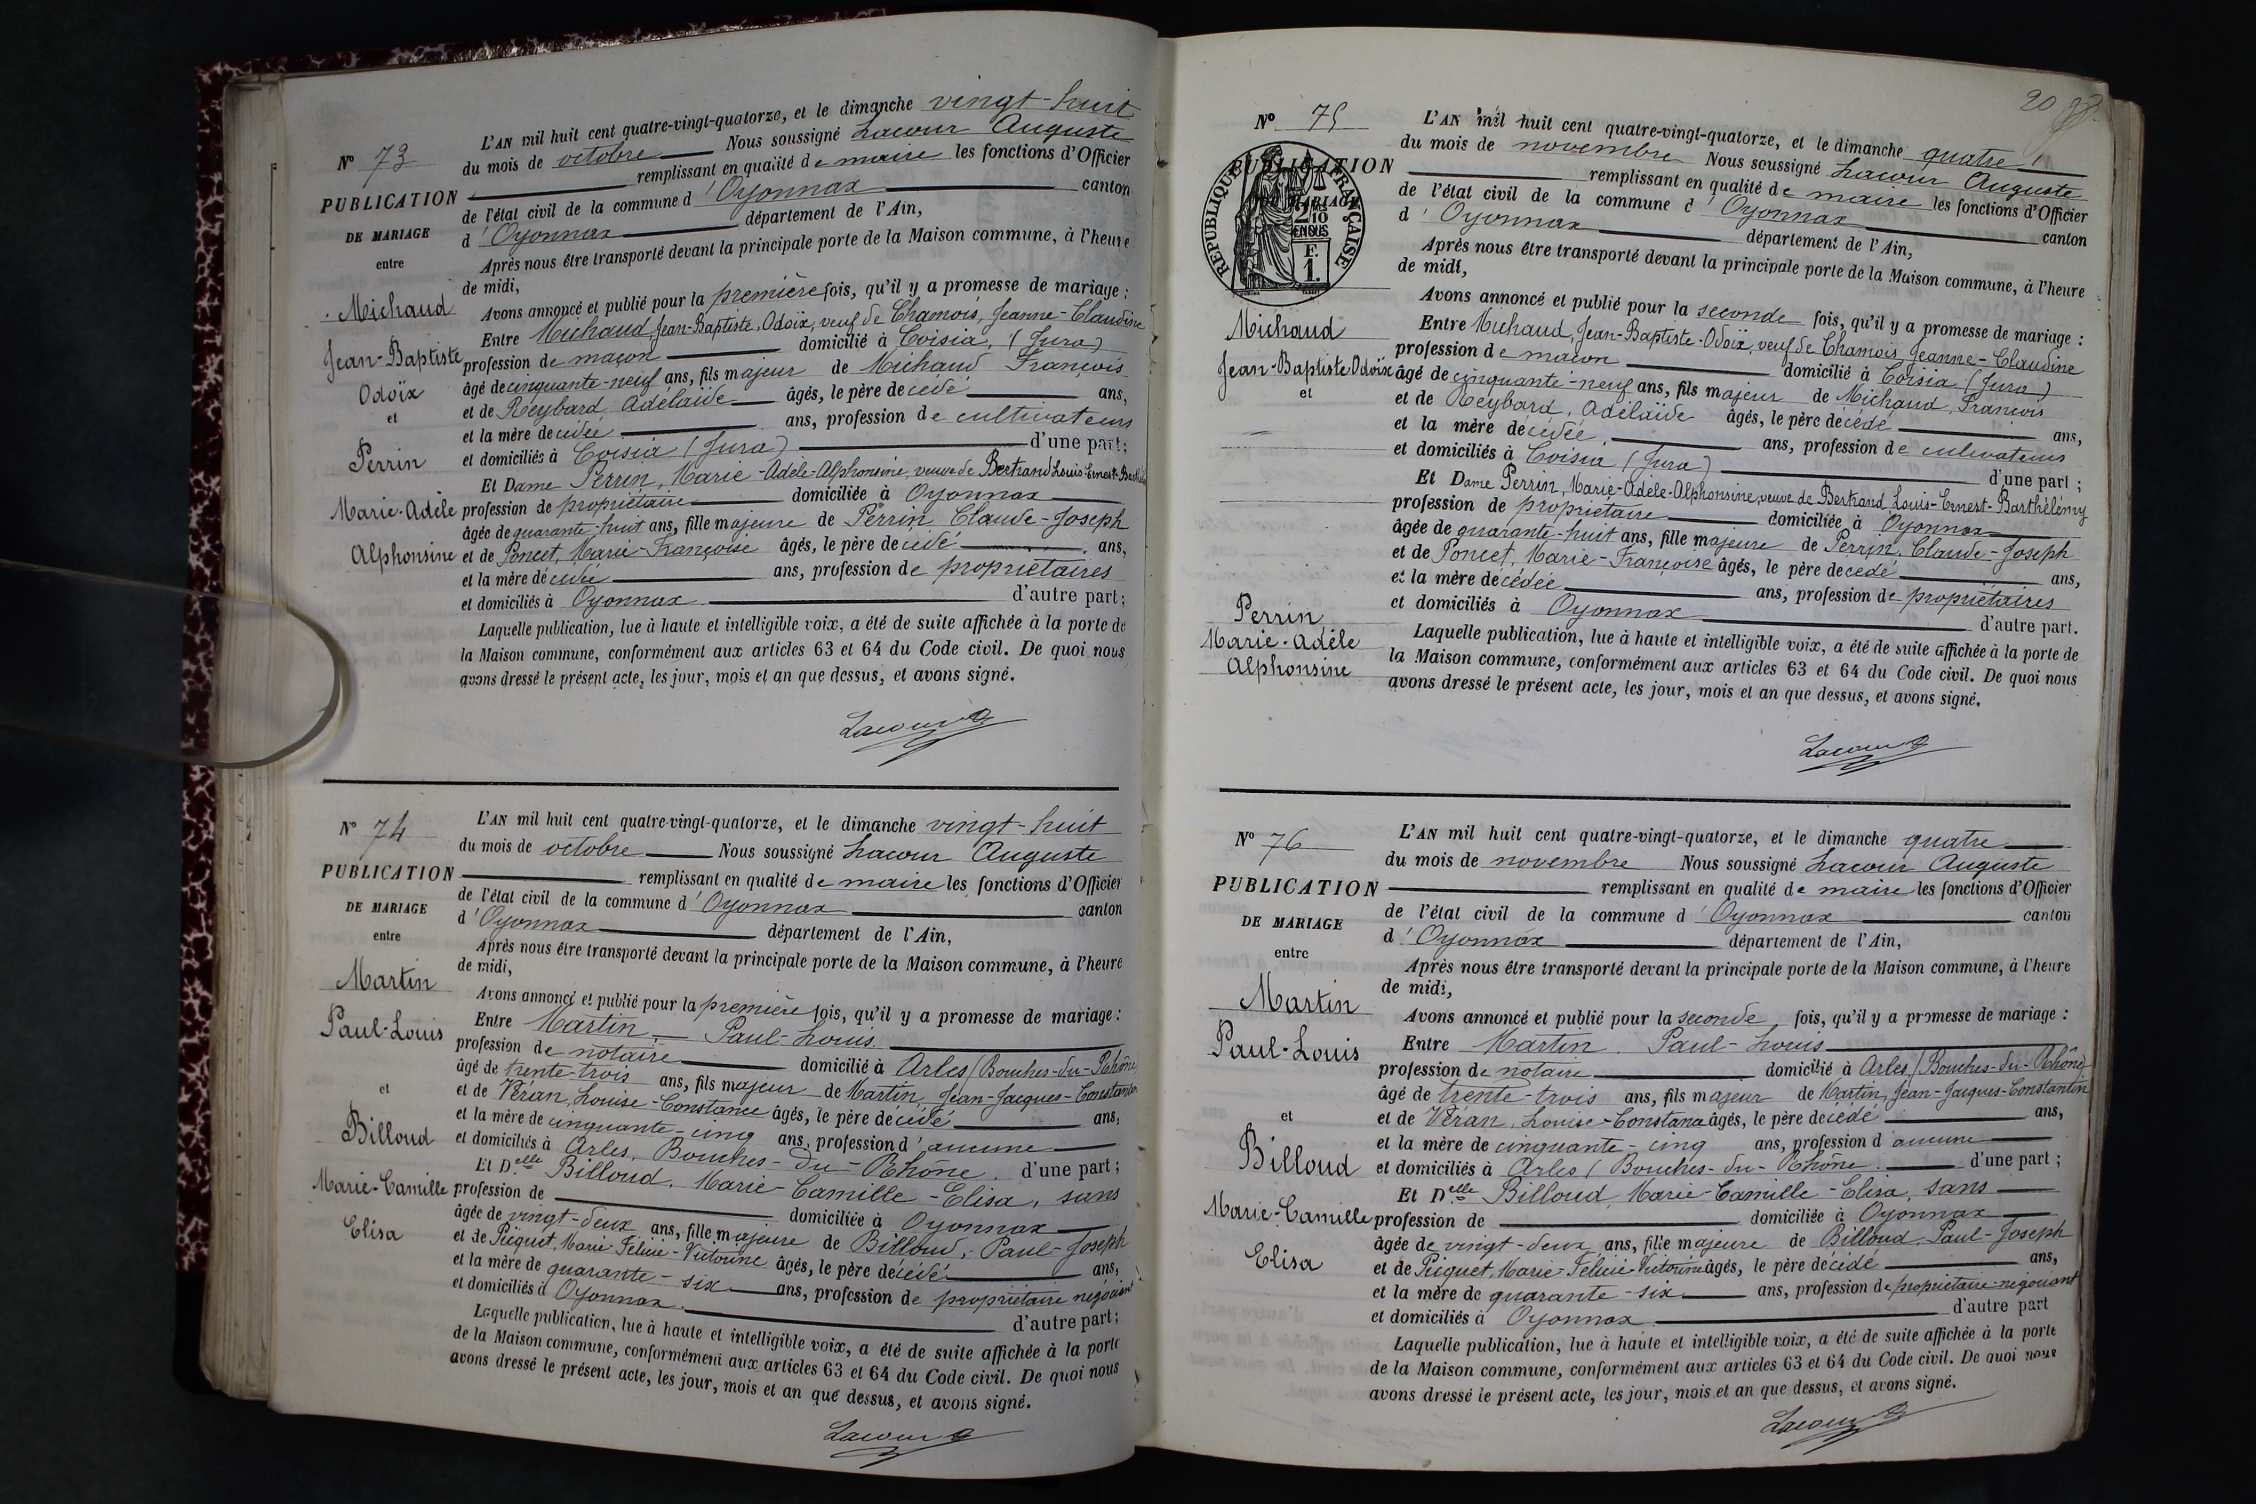 N° 73
PUBLICATION
DE MARIAGE
entre
Michaud
Jean-Baptiste
Odoïx
et
Perrin
Marie-Adèle
Alphonsine
L'AN mil huit cent quatre-vingt-quatorze, et le dimanche vingt-huit
du mois de octobre Nous soussigné Lacour Auguste
remplissant en qualité de maire les fonctions d'Officier
de l'état civil de la commune d'Oyonnax canton
d'Oyonnax département de l'Ain,
Après nous être transporté devant la principale porte de la Maison commune, à l'heure
de midi,
Avons annoncé et publié pour la première fois, qu'il y a promesse de mariage :
Entre Michaud, Jean-Baptiste-Odoïx, veuf de Chamois, Jeanne-Claudine
profession de maçon domicilié à Coisia, (Jura)
âgé de cinquante-neuf ans, fils majeur de Michaud François
et de Reybard, Adélaïde âgés, le père décédé ans,
et la mère décédée ans, profession de cultivateurs
et domiciliés à Coisia (Jura) d'une part;
Et Dame Perrin, Marie-Adèle-Alphonsine, veuve de Bertrand Louis-Ernest-
profession de propriétaire domiciliée à Oyonnax
âgée de quarante-huit ans, fille majeure de Perrin Claude-Joseph
et de Poncet, Marie-Françoise âgés, le père décédé ans,
et la mère décédée ans, profession de propriétaires
et domiciliés à Oyonnax d'autre part;
Laquelle publication, lue à haute et intelligible voix, a été de suite affichée à la porte de
la Maison commune, conformément aux articles 63 et 64 du Code civil. De quoi nous
avons dressé le présent acte, les jour, mois et an que dessus, et avons signé.
Lacour A
N° 74
PUBLICATION
DE MARIAGE
entre
Martin
Paul-Louis
et
Billoud
Marie-Camille
Elisa
L'AN mil huit cent quatre-vingt-quatorze, et le dimanche vingt-huit
du mois de octobre Nous soussigné Lacour Auguste
remplissant en qualité de maire les fonctions d'Officier
de l'état civil de la commune d'Oyonnax canton
d'Oyonnax département de l'Ain,
Après nous être transporté devant la principale porte de la Maison commune, à l'heure
de midi,
Avons annoncé et publié pour la première fois, qu'il y a promesse de mariage :
Entre Martin, Paul-Louis
profession de notaire domicilié à Arles (Bouches-du-Rhône)
âgé de trente-trois ans, fils majeur de Martin, Jean-Jacques-Constantin
et de Véran, Louise-Constance âgés, le père décédé ans,
et la mère de cinquante-cinq ans, profession d'aucune
et domiciliés à Arles, Bouches-du-Rhône. d'une part;
Et Delle Billoud, Marie-Camille-Elisa, sans
profession de domiciliée à Oyonnax
âgée de vingt-deux ans, fille majeure de Billoud, Paul-Joseph
et de Piquet, Marie Félicie-Victorine âgés, le père décédé ans,
et la mère de quarante-six ans, profession de propriétaire négociant
et domiciliés à Oyonnax d'autre part;
Laquelle publication, lue à haute et intelligible voix, a été de suite affichée à la porte
de la Maison commune, conformément aux articles 63 et 64 du Code civil. De quoi nous
avons dressé le présent acte, les jour, mois et an que dessus, et avons signé.
Lacour A
20
N° 75
PUBLICATION
DE MARIAGE
RÉPUBLIQUE FRANÇAISE
2/10
EN SUS
F.
1.
Michaud
Jean-Baptiste Odoïx
et
Perrin
Marie-Adèle
Alphonsine
L'AN mil huit cent quatre-vingt-quatorze, et le dimanche quatre
du mois de novembre Nous soussigné Lacour Auguste
remplissant en qualité de maire les fonctions d'Officier
de l'état civil de la commune d'Oyonnax canton
d'Oyonnax département de l'Ain,
Après nous être transporté devant la principale porte de la Maison commune, à l'heure
de midi,
Avons annoncé et publié pour la seconde fois, qu'il y a promesse de mariage :
Entre Michaud, Jean-Baptiste-Odoïx, veuf de Chamois, Jeanne-Claudine
profession de maçon domicilié à Coisia (Jura)
âgé de cinquante-neuf ans, fils majeur de Michaud, François
et de Reybard, Adélaïde âgés, le père décédé ans,
et la mère décédée, ans, profession de cultivateurs
et domiciliés à Coisia (Jura) d'une part;
Et Dame Perrin, Marie-Adèle-Alphonsine, veuve de Bertrand Louis-Ernest-Barthélémy
profession de propriétaire domiciliée à Oyonnax
âgée de quarante-huit ans, fille majeure de Perrin, Claude-Joseph
et de Poncet, Marie-Françoise âgés, le père décédé ans,
et la mère décédée ans, profession de propriétaires
et domiciliés à Oyonnax d'autre part.
Laquelle publication, lue à haute et intelligible voix, a été de suite affichée à la porte de
la Maison commune, conformément aux articles 63 et 64 du Code civil. De quoi nous
avons dressé le présent acte, les jour, mois et an que dessus, et avons signé.
Lacour A
N° 76
PUBLICATION
DE MARIAGE
entre
Martin
Paul-Louis
et
Billoud
Marie-Camille
Elisa
L'AN mil huit cent quatre-vingt-quatorze, et le dimanche quatre
du mois de novembre Nous soussigné Lacour Auguste
remplissant en qualité de maire les fonctions d'Officier
de l'état civil de la commune d'Oyonnax canton
d'Oyonnax département de l'Ain,
Après nous être transporté devant la principale porte de la Maison commune, à l'heure
de midi,
Avons annoncé et publié pour la seconde fois, qu'il y a promesse de mariage :
Entre Martin, Paul-Louis
profession de notaire domicilié à Arles (Bouches-du-Rhône)
âgé de trente-trois ans, fils majeur de Martin, Jean-Jacques-Constantin
et de Véran, Louise-Constance âgés, le père décédé ans,
et la mère de cinquante-cinq ans, profession d'aucune
et domiciliés à Arles (Bouches-du-Rhône. d'une part;
Et Delle Billoud, Marie-Camille-Elisa, sans
profession de domiciliée à Oyonnax
âgée de vingt-deux ans, fille majeure de Billoud, Paul-Joseph
et de Piquet, Marie-Félicie-Victorine âgés, le père décédé ans,
et la mère de quarante-six ans, profession de propriétaire-négociant
et domiciliés à Oyonnax d'autre part
Laquelle publication, lue à haute et intelligible voix, a été de suite affichée à la porte
de la Maison commune, conformément aux articles 63 et 64 du Code civil. De quoi nous
avons dressé le présent acte, les jour, mois et an que dessus, et avons signé.
Lacour A